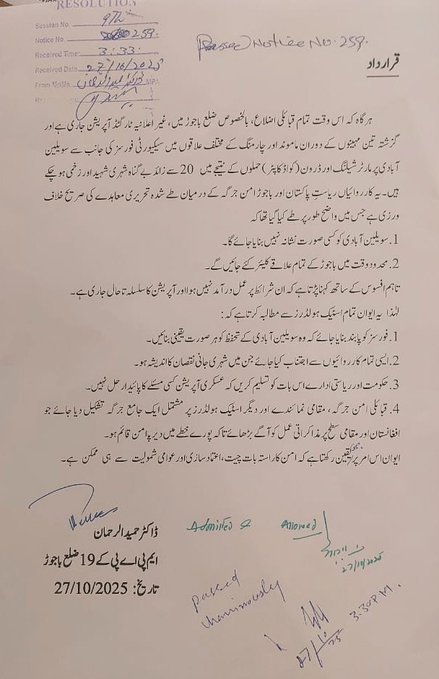 RESOLUTION
Session No. 9Th
Notice No. 259
Received Time: 3:33
Received Date 27/10/2025
From Mr/Ms. MPA
Passed Notice No. 259.
قرارداد
ہر گاہ کہ اس وقت تمام قبائلی اضلاع، بالخصوص ضلع باجوڑ میں، غیر اعلانیہ ٹارگٹڈ آپریشن جاری ہے اور
گزشتہ تین مہینوں کے دوران ماموند اور چارمنگ کے مختلف علاقوں میں سیکیورٹی فورسز کی جانب سے سویلین
آبادی پر مارٹر شیلنگ اور ڈرون (کواڈ کاپٹر) حملوں کے نتیجے میں 20 سے زائد بے گناہ شہری شہید اور زخمی ہو چکے
ہیں۔ یہ کاروائیاں ریاستِ پاکستان اور باجوڑ امن جرگہ کے درمیان طے شدہ تحریری معاہدے کی صریح خلاف
ورزی ہے جس میں واضح طور پر طے کیا گیا تھا کہ
1. سویلین آبادی کو کسی صورت نشانہ نہیں بنایا جائے گا۔
2. محدود وقت میں باجوڑ کے تمام علاقے کلیئر کئے جائیں گے۔
تاہم افسوس کے ساتھ کہنا پڑتا ہے کہ ان شرائط پر عمل درآمد نہیں ہوا اور آپریشن کا سلسلہ تاحال جاری ہے۔
لہٰذا یہ ایوان تمام اسٹیک ہولڈرز سے مطالبہ کرتا ہے کہ:
1. فورسز کو پابند بنایا جائے کہ وہ سویلین آبادی کے تحفظ کو ہر صورت یقینی بنائیں۔
2. ایسی تمام کاروائیوں سے اجتناب کیا جائے جن میں شہری جانی نقصان کا اندیشہ ہو۔
3. حکومت اور ریاستی ادارے اس بات کو تسلیم کریں کہ عسکری آپریشن کسی مسئلے کا پائیدار حل نہیں۔
4. قبائلی امن جرگہ، مقامی نمائندے اور دیگر اسٹیک ہولڈرز پر مشتمل ایک جامع جرگہ تشکیل دیا جائے جو
افغانستان اور مقامی سطح پر مذاکراتی عمل کو آگے بڑھائے تاکہ پورے خطے میں دیرپا امن قائم ہو۔
ایوان اس امر پر یقین رکھتا ہے کہ امن کا راستہ بات چیت، اعتماد سازی اور عوامی شمولیت سے ہی ممکن ہے۔
ڈاکٹر حمید الرحمان
ایم پی اے پی کے 19 ضلع باجوڑ
تاریخ: 27/10/2025
Admitted & Allowed
27/10/2025
passed
Unanimously
3:30 P.M.
27/10/25